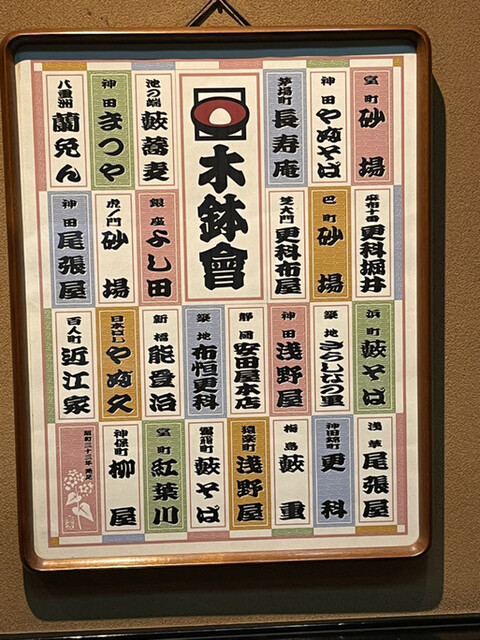 木鉢會
室町 砂場
神田 やぶそば
茅場町 長寿庵
池の端 藪蕎麦
神田 まつや
八重洲 蘭免ん
麻布十番 更科堀井
巴町 砂場
芝大門 更科布屋
銀座 よし田
虎ノ門 砂場
神田 尾張屋
浜町 藪そば
築地 さらしなの里
神田 浅野屋
静岡 安田屋本店
築地 布恒更科
新橋 能登治
日本ばし やぶ久
百人町 近江家
浅草 尾張屋
神田錦町 更科
梅島 藪重
猿楽町 浅野屋
雷門 藪そば
室町 紅葉川
神保町 柳屋
昭和二十三年 発足